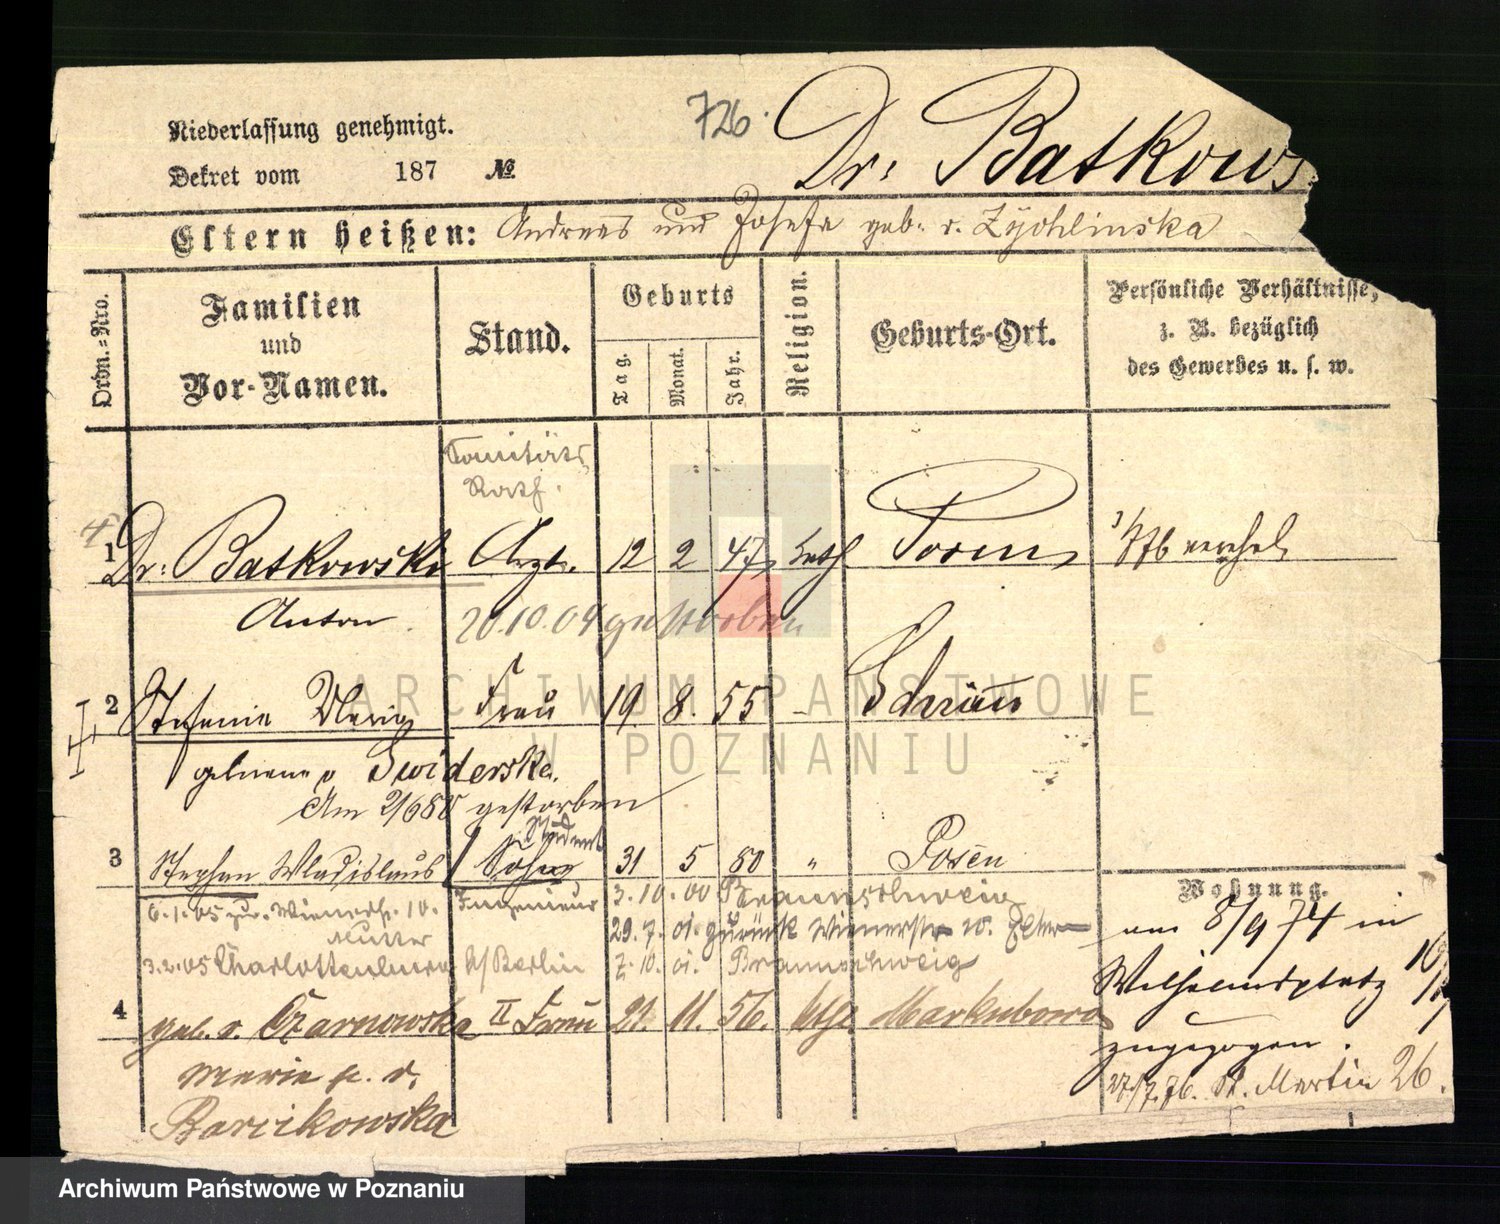 Niederlassung genehmigt.
726.
Dr. Batkows
Dekret vom 187 №
Eltern heißen: Andreas und Josefa geb. v. Zychlinska
Ordn.-Nro.
Familien
und
Vor-Namen.
Stand.
Geburts
Tag.
Monat.
Jahr.
Religion.
Geburts-Ort.
Persönliche Verhältnisse,
z. B. bezüglich
des Gewerbes u. s. w.
Sanitäts
Rath.
1 Dr. Batkowski Arzt. 12 2 47 kath Posen 1/76 verehel
Anton
20.10.04 gestorben
2 Stefanie Marie Frau 19. 8. 55 Schrimm
geborene v Swiderska.
Am 2/6 80 gestorben
Student
3 Stephan Wladislaus Sohn 31 5 80 " Posen
Ingenieur
3.10.00 Braunschweig
6.1.05 zur. Wienerstr. 10.
Mutter
29.7.01. zurück Wienerstr 10. Eltern
3.2.05 Charlottenburg b/Berlin
7.10.01. Braunschweig
4 geb. v. Czarnowska II Frau 21. 11. 56. kth. Markubowo
Marie
Barcikowska
Wohnung.
am 8/9 74 in
Wilhelmsplatz
zugezogen.
27/7.76. St. Martin 26.
ARCHIWUM PAŃSTWOWE
W POZNANIU
Archiwum Państwowe w Poznaniu